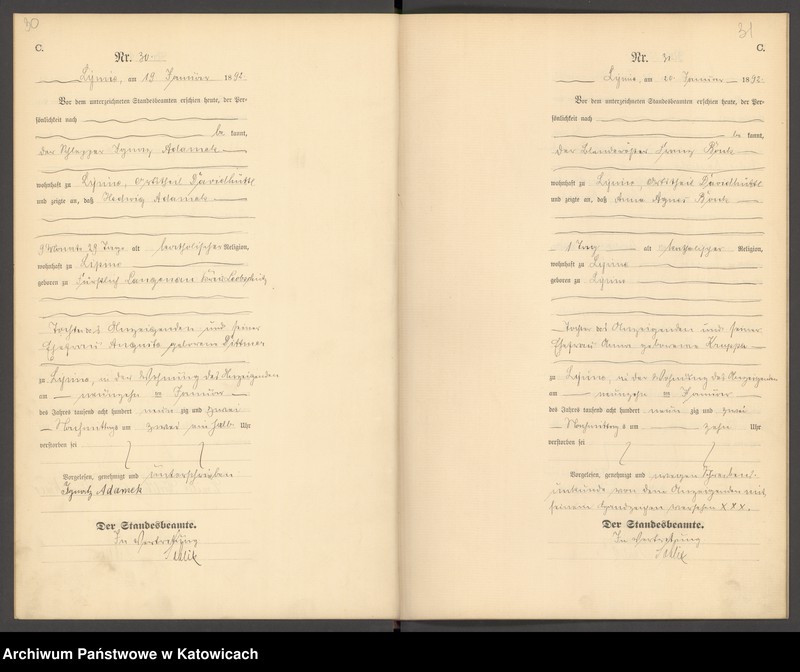 30
C.
Nr. 30
Lipine, am 19 Januar 1892.
Vor dem unterzeichneten Standesbeamten erschien heute, der Per-
sönlichkeit nach
be kannt,
der Schlepper Ignatz Adamek
wohnhaft zu Lipine, Ortstheil
und zeigte an, daß Hedwig Adamek
9 Monate 29 Tage alt katholischer Religion,
wohnhaft zu Lipine
geboren zu
Tochter des Anzeigenden und seiner
Ehefrau Augusta geborenen Dittmer
zu Lipine, in der Wohnung des Anzeigenden
am neunzehn ten Januar
des Jahres tausend acht hundert neun zig und zwei
Nachmittags zwei ein halb Uhr
verstorben sei
Vorgelesen, genehmigt und unterschrieben
Ignatz Adamek
Der Standesbeamte.
In Vertretung
31
C.
Nr. 31
Lipine, am 20 Januar 1892.
Vor dem unterzeichneten Standesbeamten erschien heute, der Per-
sönlichkeit nach
be kannt,
der Franz
wohnhaft zu Lipine, Ortstheil
und zeigte an, daß Anna Agnes
1 Tag alt katholischer Religion,
wohnhaft zu Lipine
geboren zu Lipine
Tochter des Anzeigenden und seiner
Ehefrau Anna geborene Kruppa
zu Lipine, in der Wohnung des Anzeigenden
am neunzehn ten Januar
des Jahres tausend acht hundert neun zig und zwei
Nachmittag s um zehn Uhr
verstorben sei
Vorgelesen, genehmigt und wegen Schreibens-
unkunde von dem Anzeigenden mit
seinem Handzeichen versehen XXX.
Der Standesbeamte.
In Vertretung
Archiwum Państwowe w Katowicach